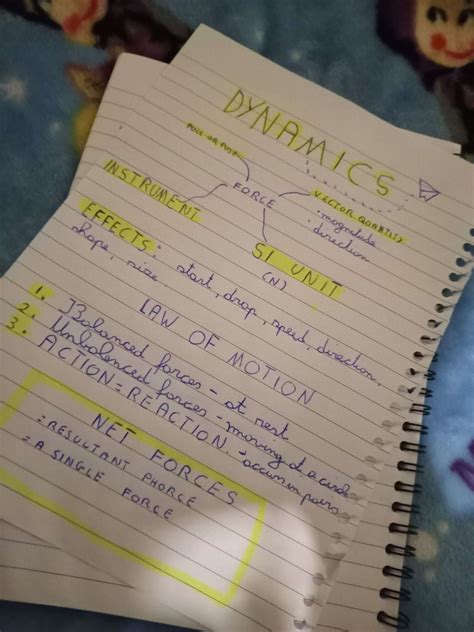 DYNAMICS
PULL OR PUSH
FORCE
VECTOR QUANTITY
• magnitude
direction
INSTRUMENT
SI UNIT
(N)
EFFECTS: start, drop, speed, direction,
shape, size.
LAW OF MOTION
1. Balanced forces - at rest
2. Unbalenced forces - moving at a
3. ACTION = REACTION. • occurs in pairs
NET FORCES
= RESULTANT PHORCE
= A SINGLE FORCE